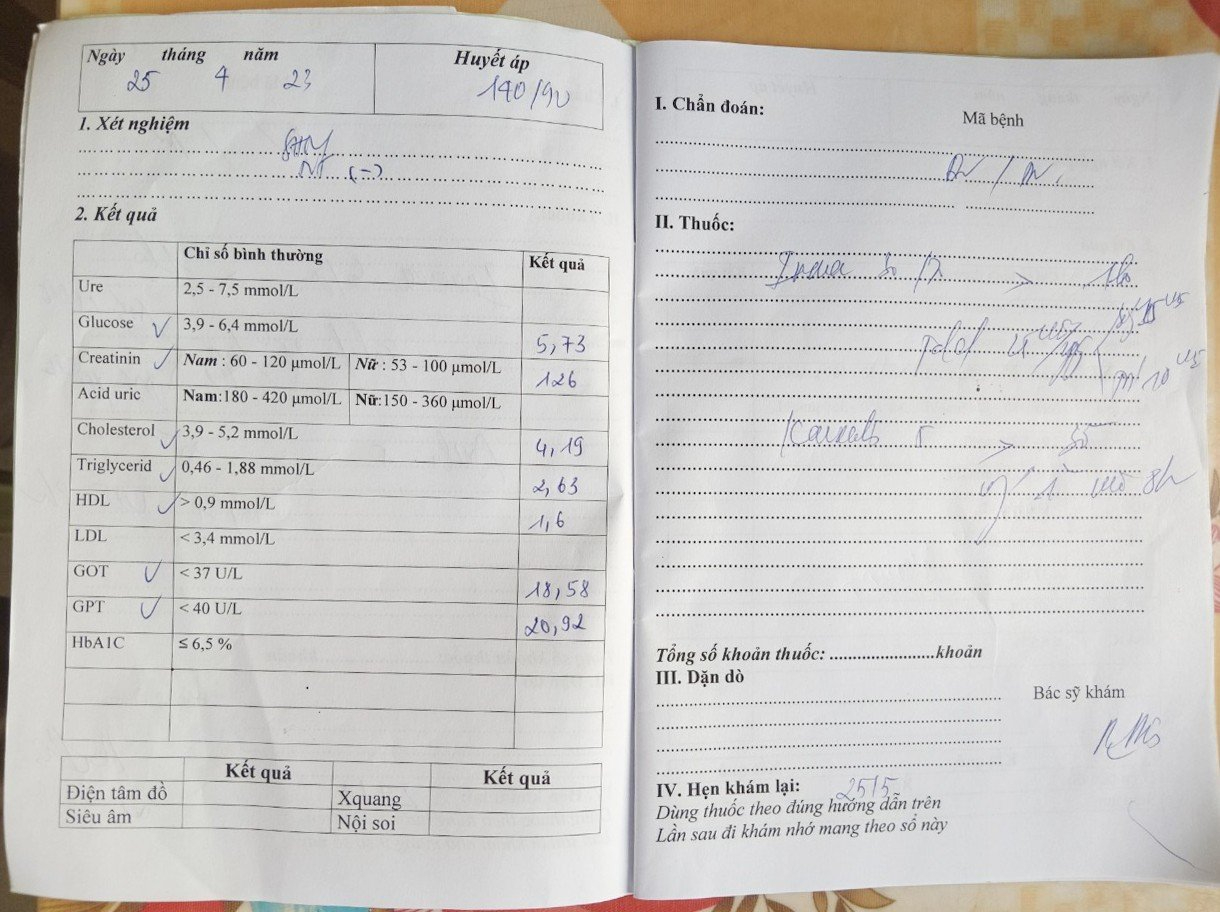 Ngày tháng năm
25 4 23
Huyết áp
140/90
1. Xét nghiệm
SHM
NT (-)
2. Kết quả
Chỉ số bình thường Kết quả
Ure 2,5 - 7,5 mmol/L
Glucose 3,9 - 6,4 mmol/L 5,73
Creatinin Nam : 60 - 120 µmol/L Nữ : 53 - 100 µmol/L 126
Acid uric Nam:180 - 420 µmol/L Nữ:150 - 360 µmol/L
Cholesterol 3,9 - 5,2 mmol/L 4,19
Triglycerid 0,46 - 1,88 mmol/L 2,63
HDL > 0,9 mmol/L 1,6
LDL < 3,4 mmol/L
GOT < 37 U/L 18,58
GPT < 40 U/L 20,92
HbA1C ≤ 6,5 %
Kết quả Kết quả
Điện tâm đồ Xquang
Siêu âm Nội soi
I. Chẩn đoán:
Mã bệnh
II. Thuốc:
Tổng số khoản thuốc: ........................khoản
III. Dặn dò
Bác sỹ khám
IV. Hẹn khám lại: 25/5
Dùng thuốc theo đúng hướng dẫn trên
Lần sau đi khám nhớ mang theo sổ này